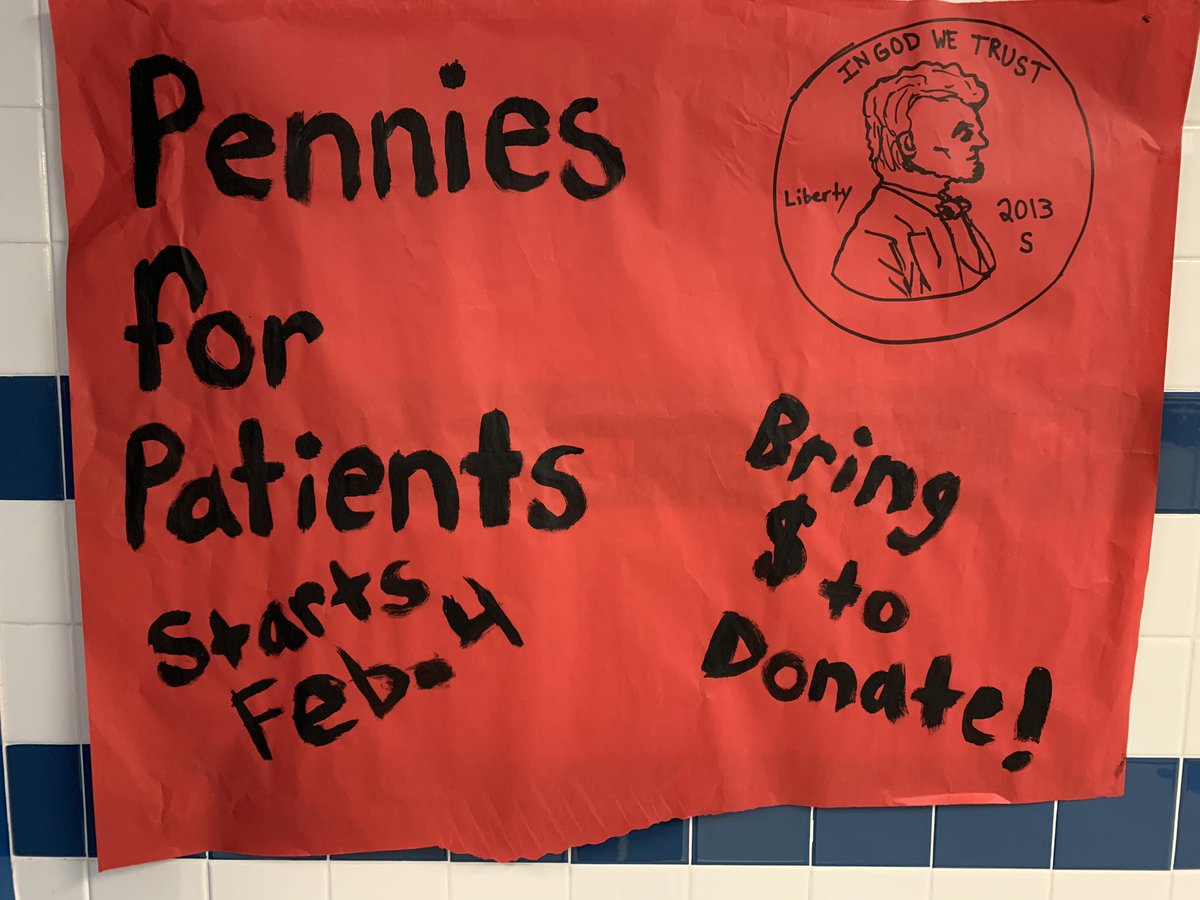 Pennies
for
Patients
Starts
Feb. 4
IN GOD WE TRUST
Liberty
2013
S
Bring
$ to
Donate!